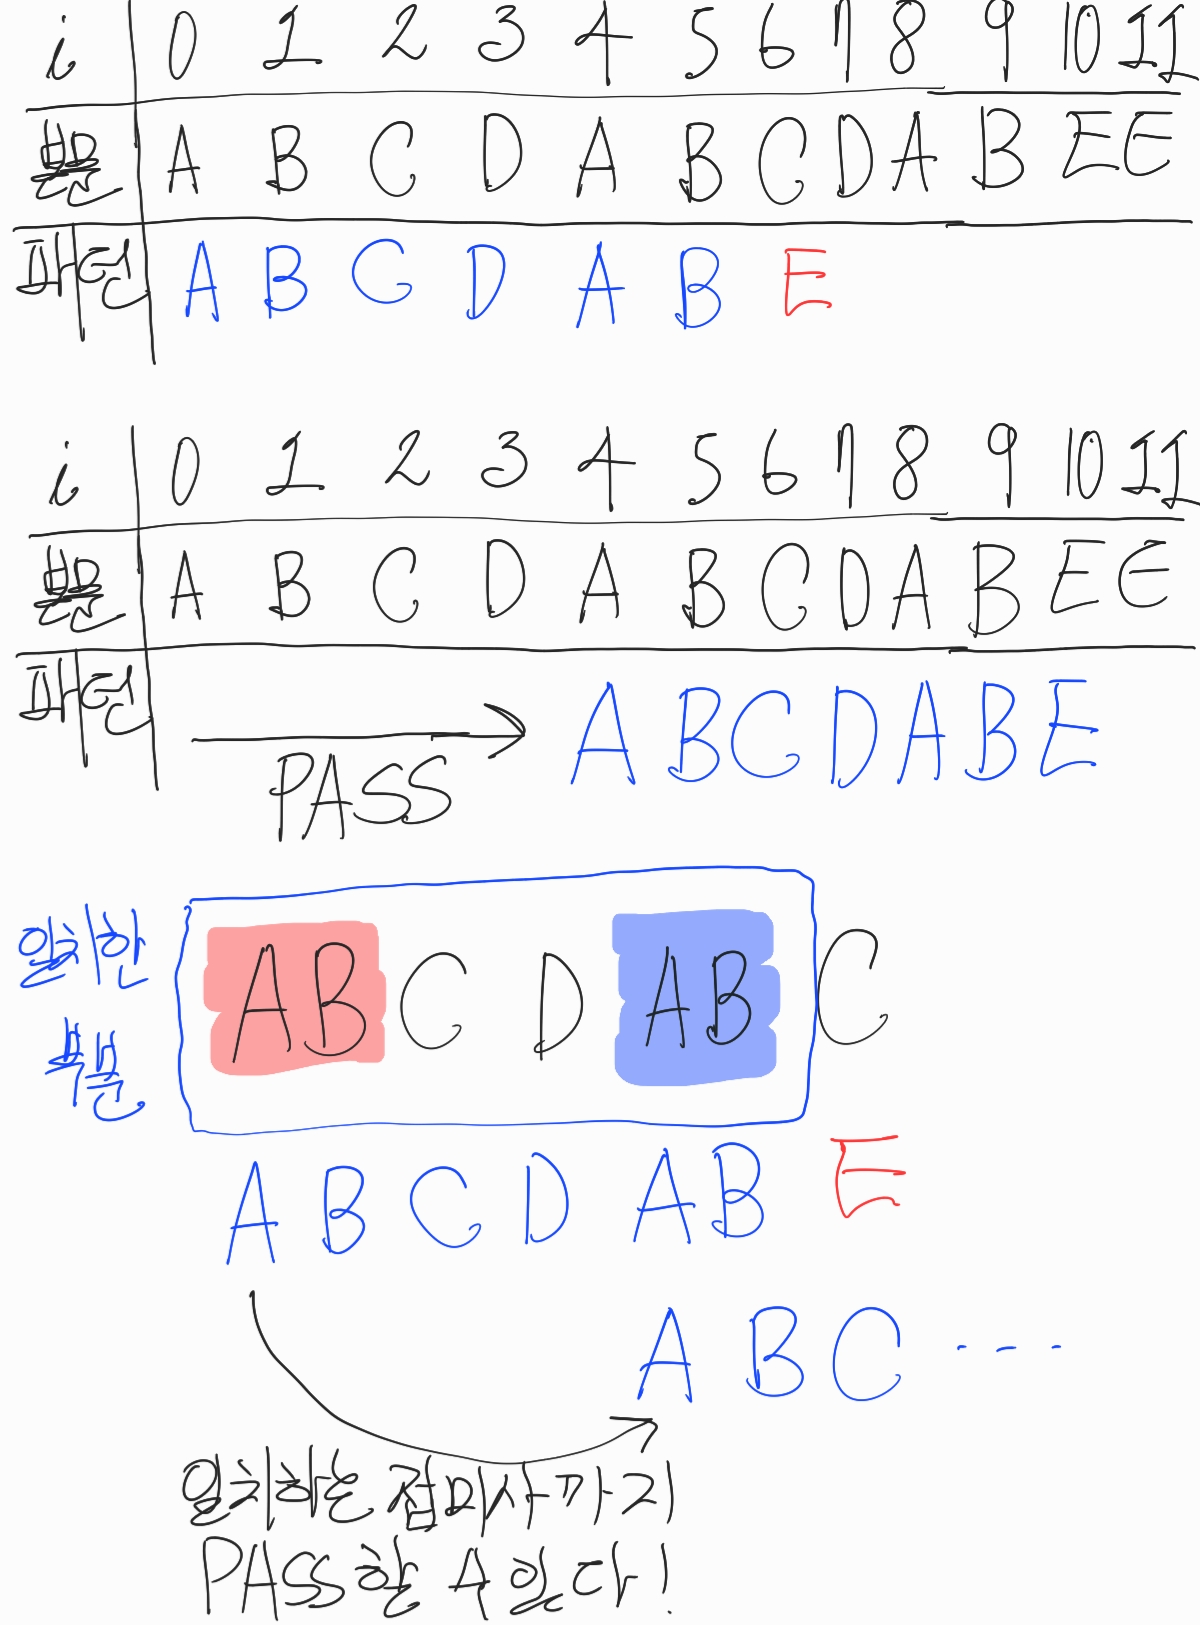 i 0 1 2 3 4 5 6 7 8 9 10 11
본문 A B C D A B C D A B E E
패턴 A B C D A B E
i 0 1 2 3 4 5 6 7 8 9 10 11
본문 A B C D A B C D A B E E
패턴 A B C D A B E
PASS
일치한
부분
A B C D A B C
A B C D A B E
A B C ---
일치하는 접미사까지
PASS할 수 있다!